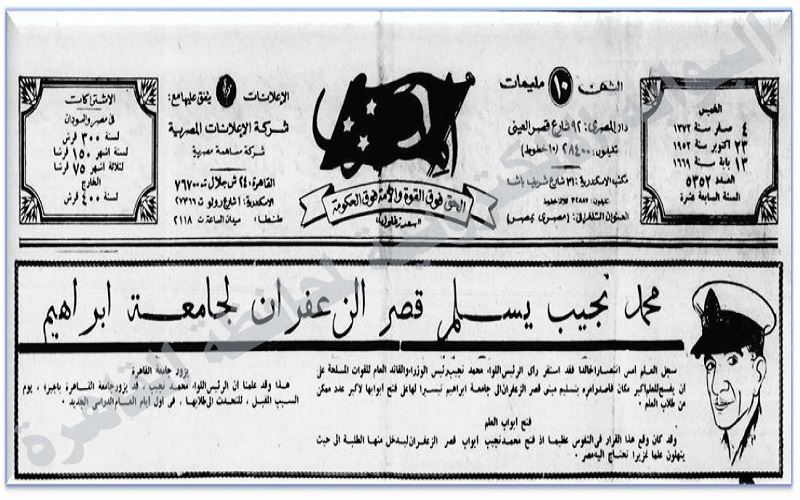 الخميس
٤ صفر سنة ١٣٧٢
٢٣ أكتوبر سنة ١٩٥٢
١٣ بابه سنة ١٦٦٩
العدد ٥٣٥٢
السنة السابعة عشرة
الثمن ١٠ مليمات
دار المصرى: ٩٢ شارع قصر العينى
تليفون: ٢٨٤٠٠ (١٠ خطوط)
مكتب الاسكندرية: ٣١ شارع شريف باشا
العنوان التلغرافى: (مصرى بمصر)
المصرى
الحق فوق القوة والأمة فوق الحكومة
سعد زغلول باشا
الإعلانات يتفق عليها مع:
شركة الإعلانات المصرية
شركة مساهمة مصرية
القاهرة: ٢٤ ش جلال ت: ٧٦٧٠٠
طنطا: ميدان الساعة ت ٢١١٨
الاشتراكات
فى مصر والسودان
لسنة ٣٠٠ قرش
لستة اشهر ١٥٠ قرشا
لثلاثة اشهر ٧٥ قرشا
الخارج
لسنة ٤٠٠ قرش
محمد نجيب يسلم قصر الزعفران لجامعة ابراهيم
سجل العلم امس انتصارا خالدا فقد استقر راى الرئيس اللواء محمد نجيب رئيس الوزراء والقائد العام للقوات المسلحة على
ان يفسح للعلم اكبر مكان فاصدر امره بتسليم مبنى قصر الزعفران الى جامعة ابراهيم تيسيرا لها على فتح ابوابها لاكبر عدد ممكن
من طلاب العلم .
فتح ابواب العلم
وقد كان وقع هذا القرار فى النفوس عظيما اذ فتح محمد نجيب ابواب قصر الزعفران ليدخل منها الطلبة الى حيث
ينهلون علما غزيرا تحتاج اليه مصر .
يزور جامعة القاهرة
هذا وقد علمنا ان الرئيس اللواء محمد نجيب ، قد يزور جامعة القاهرة بالجيزة ، يوم
السبت المقبل ، للتحدث الى طلابها ، فى اول ايام العام الدراسى الجديد .
البوابة الالكترونية لمحافظة القاهرة